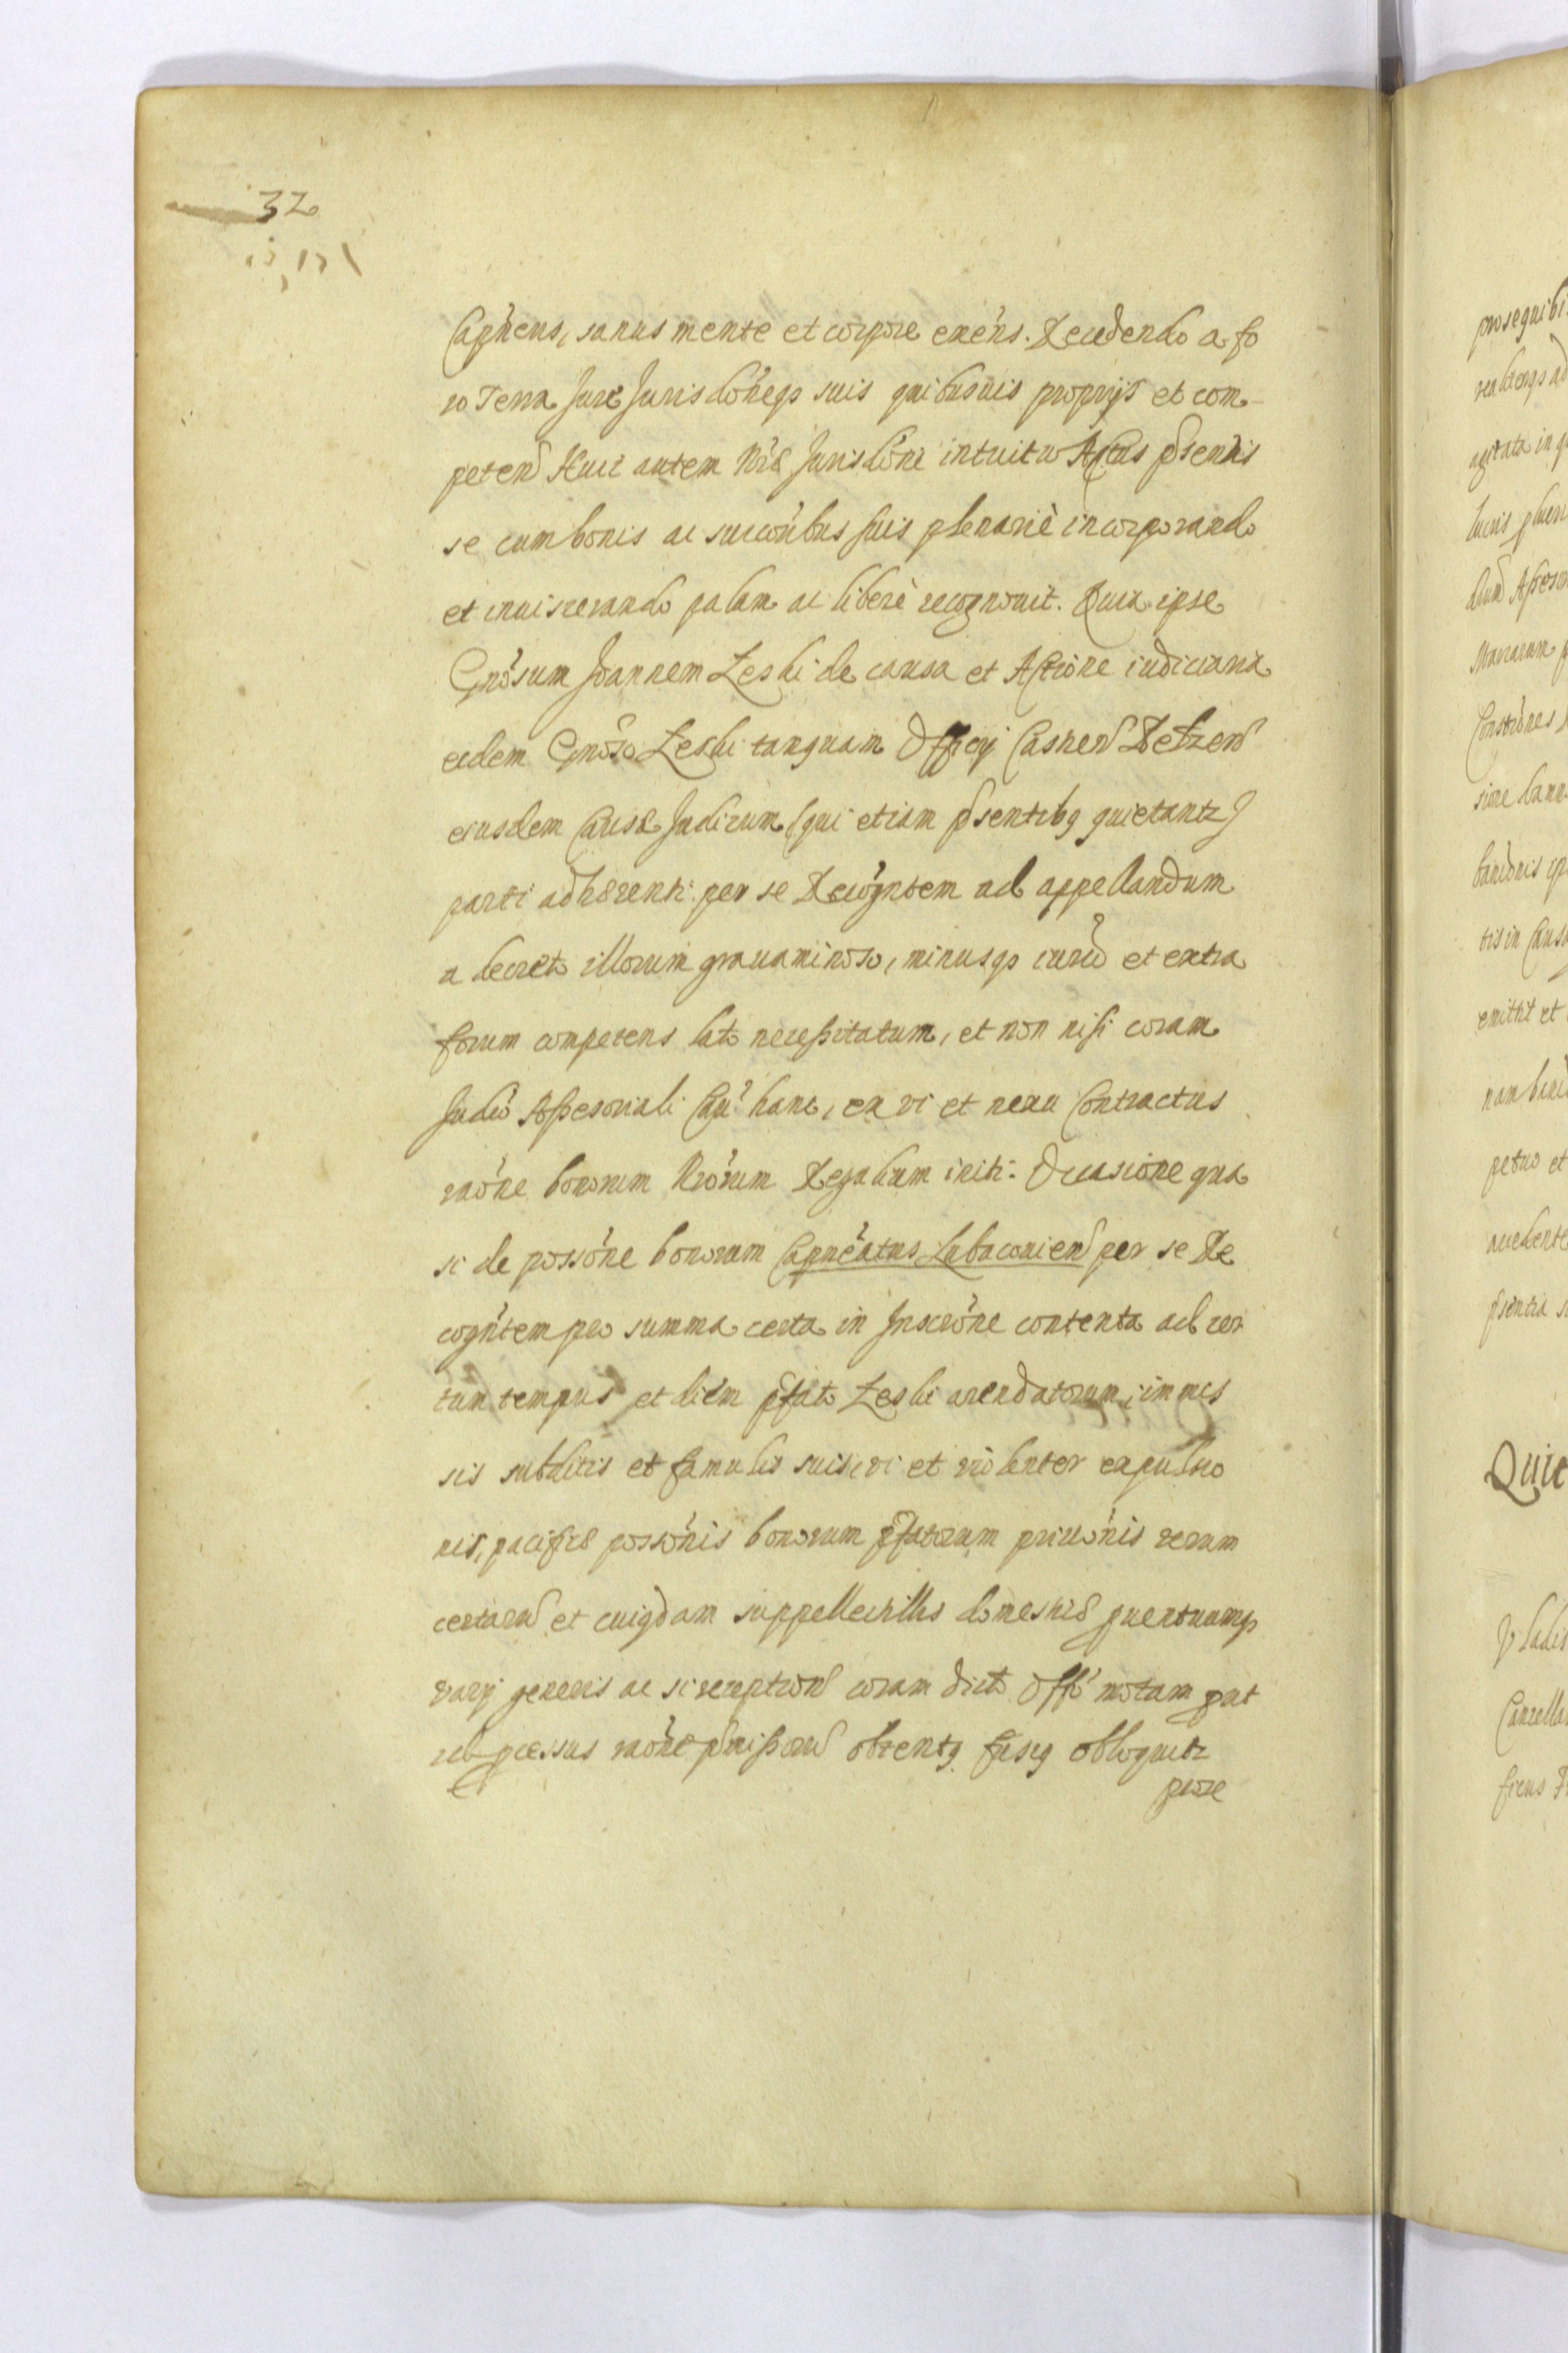 32
Capneus, sanus mente et corpore exens. Recedendo a fo
ro Terra Jure Jurisdoneqs suis quibusuis proprijs et com-
peten Huic autem Nrae Jurisdoni intuitu Actus psentis
se cum bonis ac succoribus suis plenarie incorporando
et inuiscerando palam ac libere recognouit. Quia ipse
Gnosum Joannem Zeski de causa et Actione iudiciaria
eidem Gnoso Zeski tanquam Officij Castren
eiusdem Causae Judicum (qui etiam psentibq quietantr)
parti adhaerenti per se Recogntem ad appellandum
a decreto illorum grauaminoso, minusqs iurid et extra
forum competens lato necessitatum, et non nisi coram
Judio Assessoriali Capt hanc, ex vi et nexu Contractus
raone bonorum Nrorum Regalium initi. Occasione qua
si de possone bonorum Capneatus Lubaczouien per se Re
cogntem pro summa certa in Inscrone contenta ad cer
tum tempus et diem pfato Zeski arendatorum, immis
sis subditis et famulis suis, vi et violenter expulsio
nis, pacificae possonis bonorum pfatorum priuonis rerum
certaru et cuiqdam suppellectillis domesticae quentuamqs
varij generis ac si reception coram dicto Offo notam put
ibi pcessus raone pmissoru obtentq fusiq obloquitr
pore
prosequibi
agitata in q
lucris
Assesso
Mararum p
Constiones
sione bann
tis in Causa
emittit et
petuo et
accedente
psentia s
Quie
Vladis
Cancella
ficus